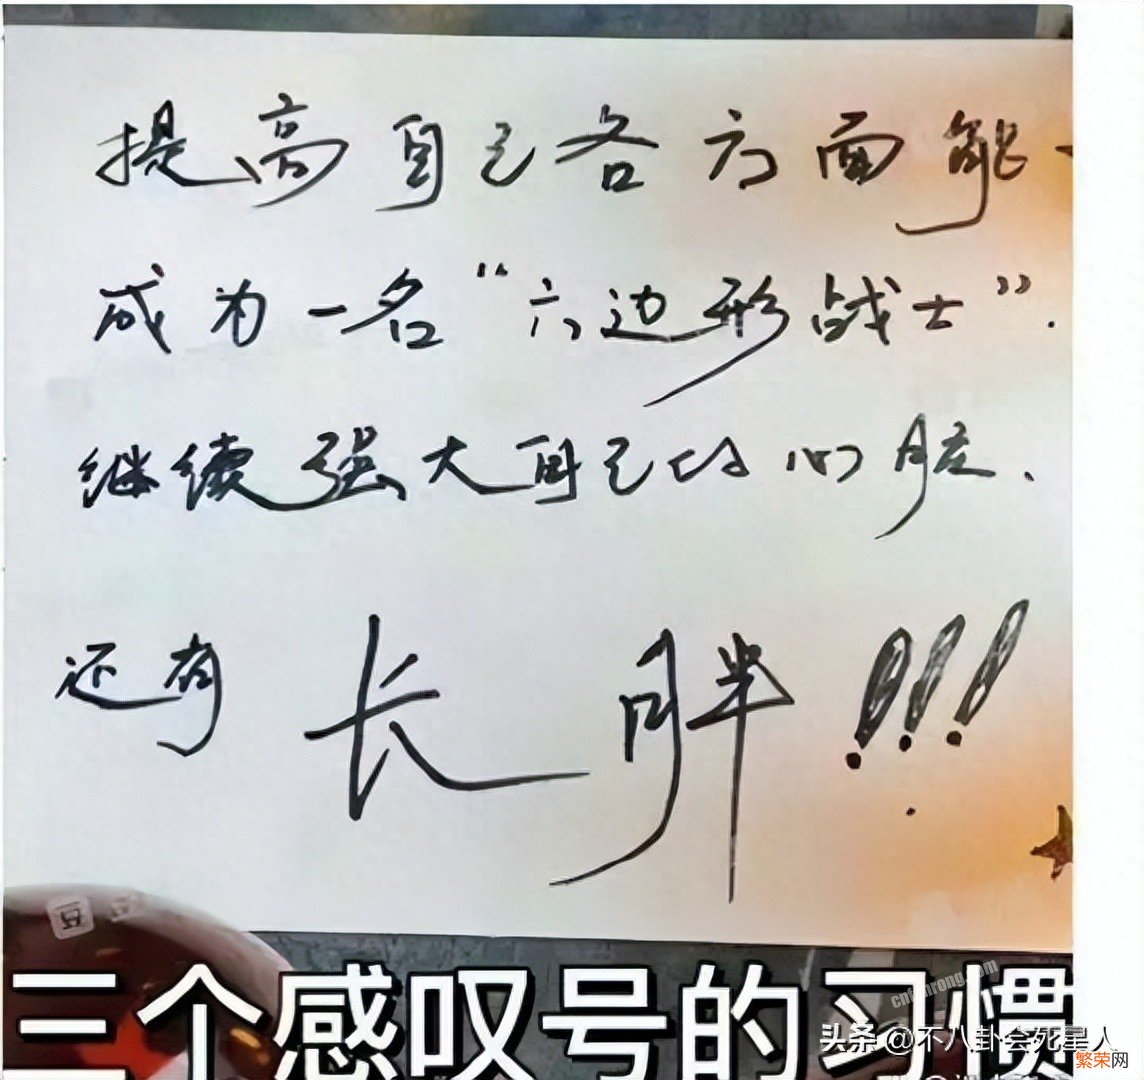 提高自己各方面能
成为一名“六边形战士”.
继续强大自己的心脏、
还有 长胖!!!
豆
三个感叹号的习惯
cnfanrong.com
头条 @不八卦会死星人
繁荣网